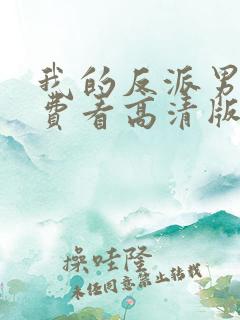 我的反派男
费看高清版
操哇隆
未经同意禁止转载